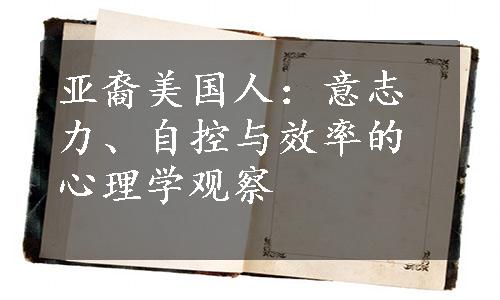 亚裔美国人：意志
力、自控与效率的
心理学观察